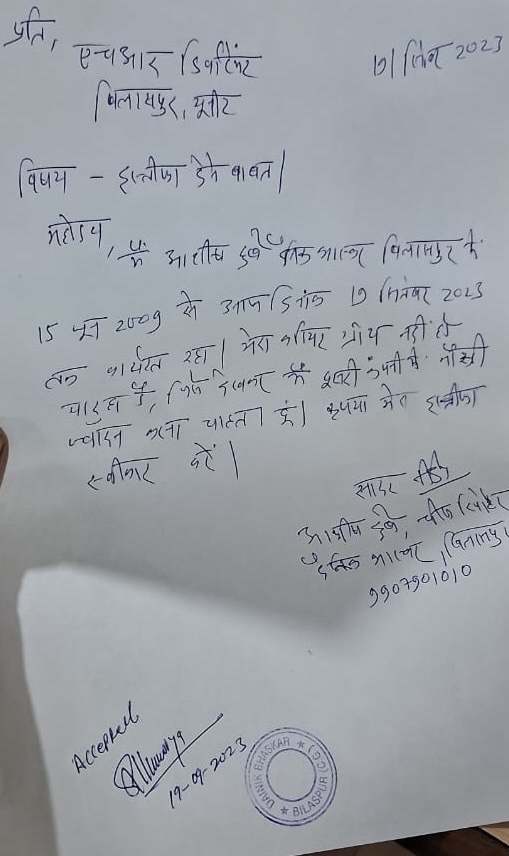 प्रति,
एचआर डिपार्टमेंट
17 सितंबर 2023
बिलासपुर, यूनिट
विषय - इस्तीफा देने बाबत।
महोदय,
मैं आशीष दुबे दैनिक भास्कर बिलासपुर में
15 जून 2009 से आज दिनांक 17 सितंबर 2023
तक कार्यरत रहा। मेरा करियर ग्रोथ नहीं हो
पा रहा है, जिसे देखकर मैं दूसरी कंपनी में नौकरी
ज्वाइन करना चाहता हूं। कृपया मेरा इस्तीफा
स्वीकार करें।
सादर
आशीष दुबे, चीफ रिपोर्टर
दैनिक भास्कर, बिलासपुर
9907901010
Accepted
19-09-2023
DAINIK BHASKAR ★ (CG) ★ BILASPUR